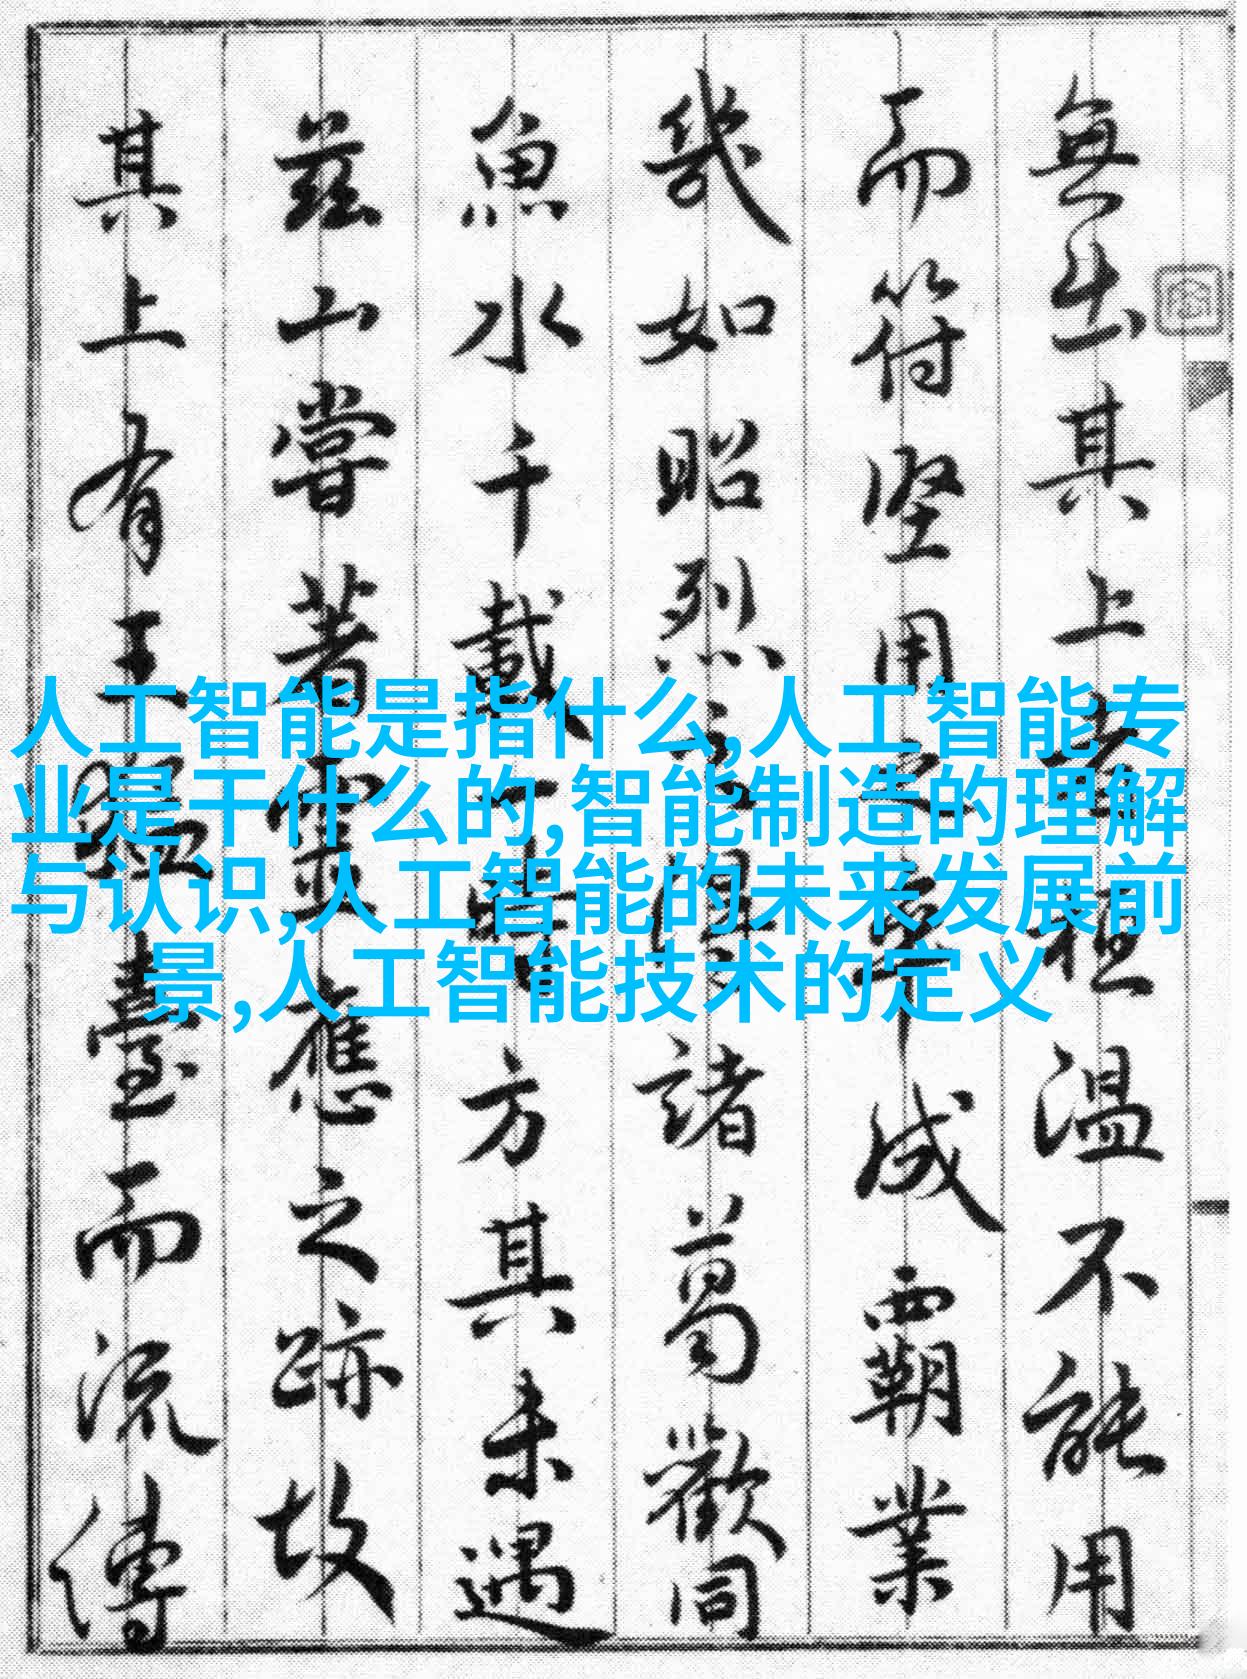 無出其上者桓溫不能用
而符堅用之卒成霸業
幾如昭烈之諸葛歡同
魚水千載一時方其未遇
茲山嘗著靈應之跡故
其上有王猛臺而流傳
人工智能是指什么,人工智能专
业是干什么的,智能制造的理解
与认识,人工智能的未来发展前
景,人工智能技术的定义